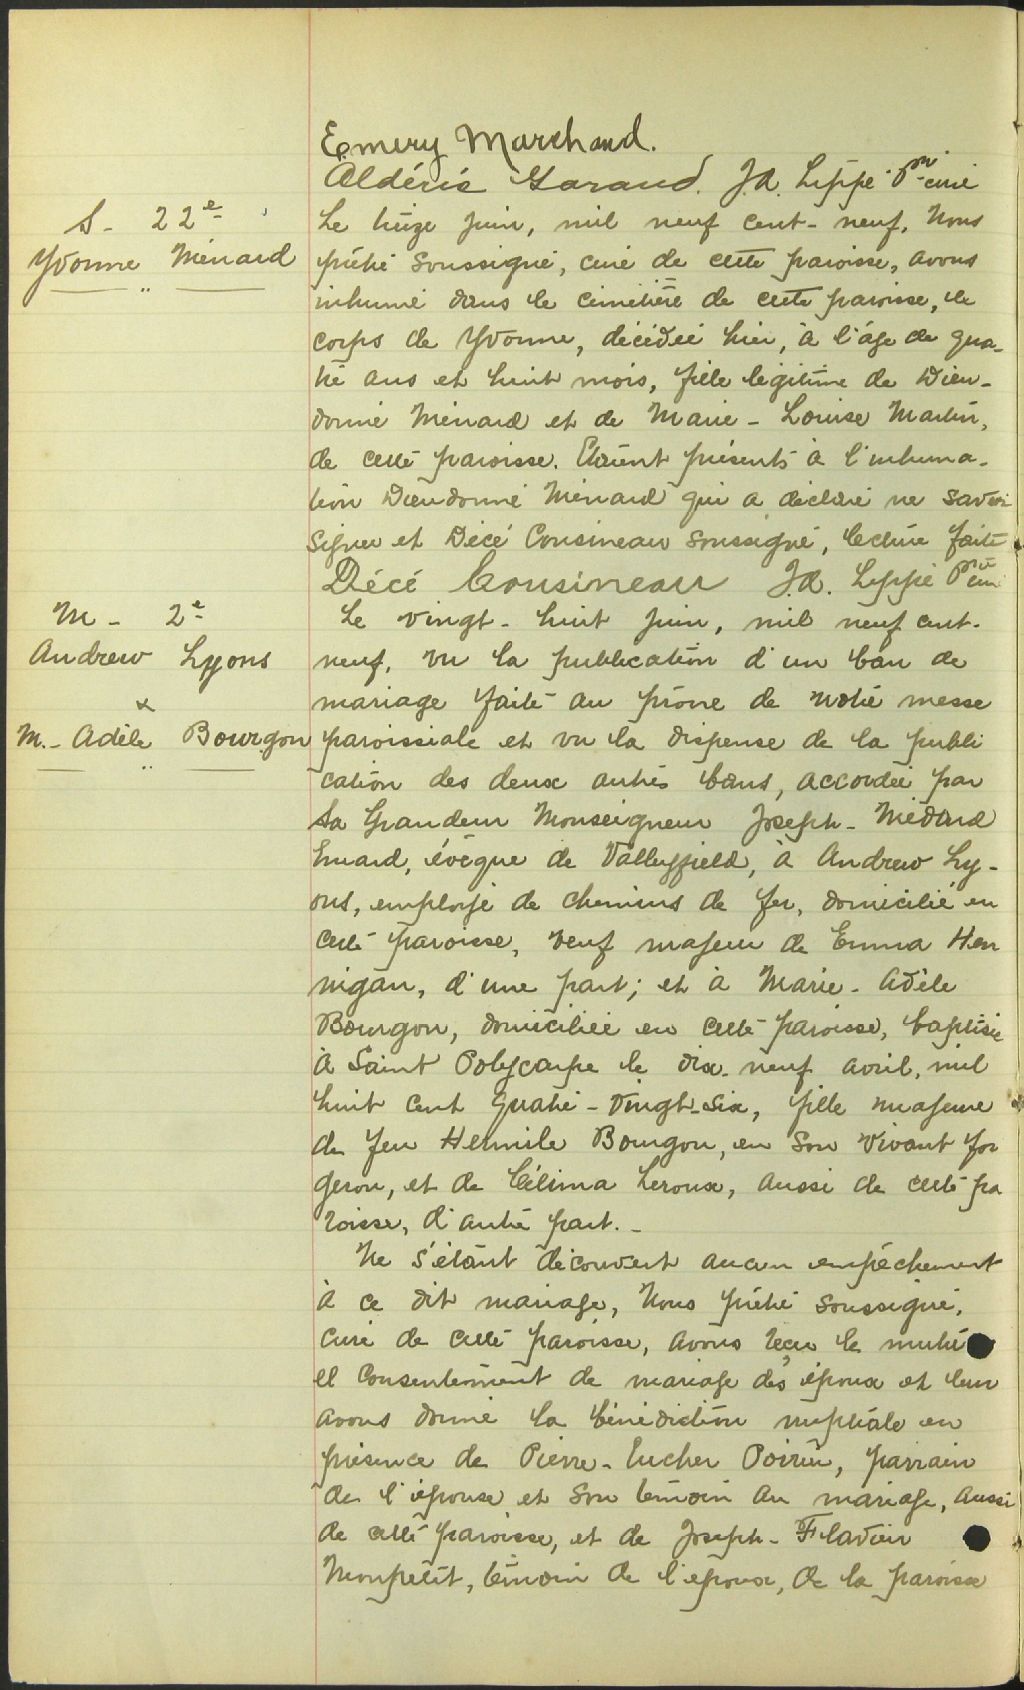 Emery Marchand.
Aldéric Garand. J.A. Lippé Ptre curé
S - 22e
Yvonne Ménard
Le treize juin, mil neuf cent-neuf, Nous
prêtre soussigné, curé de cette paroisse, avons
inhumé dans le cimetière de cette paroisse, le
corps de Yvonne, décédée hier, à l'âge de qua-
tre ans et huit mois, fille légitime de Dieu-
donné Ménard et de Marie-Louise Martin,
de cette paroisse. Etaient présents à l'inhuma-
tion Dieudonné Ménard qui a déclaré ne savoir
signer et Décé Cousineau soussigné, lecture faite
Décé Cousineau J.A. Lippé Ptre curé
M - 2e
Andrew Lyons
&
M.-Adèle Bourgon
Le vingt-huit juin, mil neuf cent-
neuf, vu la publication d'un ban de
mariage faite au prône de notre messe
paroissiale et vu la dispense de la publi
cation des deux autres bans, accordée par
Sa Grandeur Monseigneur Joseph-Médard
Emard, évêque de Valleyfield, à Andrew Ly-
ons, employé de chemins de fer, domicilié en
cette paroisse, veuf majeur de Emma Hen
nigan, d'une part; et à Marie-Adèle
Bourgon, domiciliée en cette paroisse, baptisée
à Saint Polycarpe le dix-neuf avril, mil
huit cent quatre-vingt-six, fille majeure
de feu Hermile Bourgon, en son vivant for
geron, et de Célima Leroux, aussi de cette pa
roisse, d'autre part.-
Ne s'étant découvert aucun empêchement
à ce dit mariage, Nous prêtre soussigné,
curé de cette paroisse, avons reçu le mutu
el consentement de mariage des époux et leur
avons donné la bénédiction nuptiale en
présence de Pierre-Eucher Poirier, parrain
de l'épouse et son témoin au mariage, aussi
de cette paroisse, et de Joseph-Flavien
Monpetit, témoin de l'époux, de la paroisse